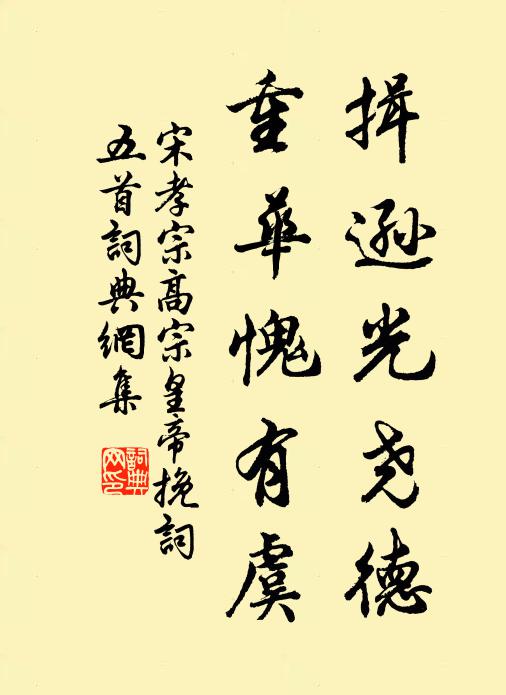 揖逊光尧德
重華愧有虞
宋孝宗高宗皇帝挽詞
五首詞典網集
詞典
网印